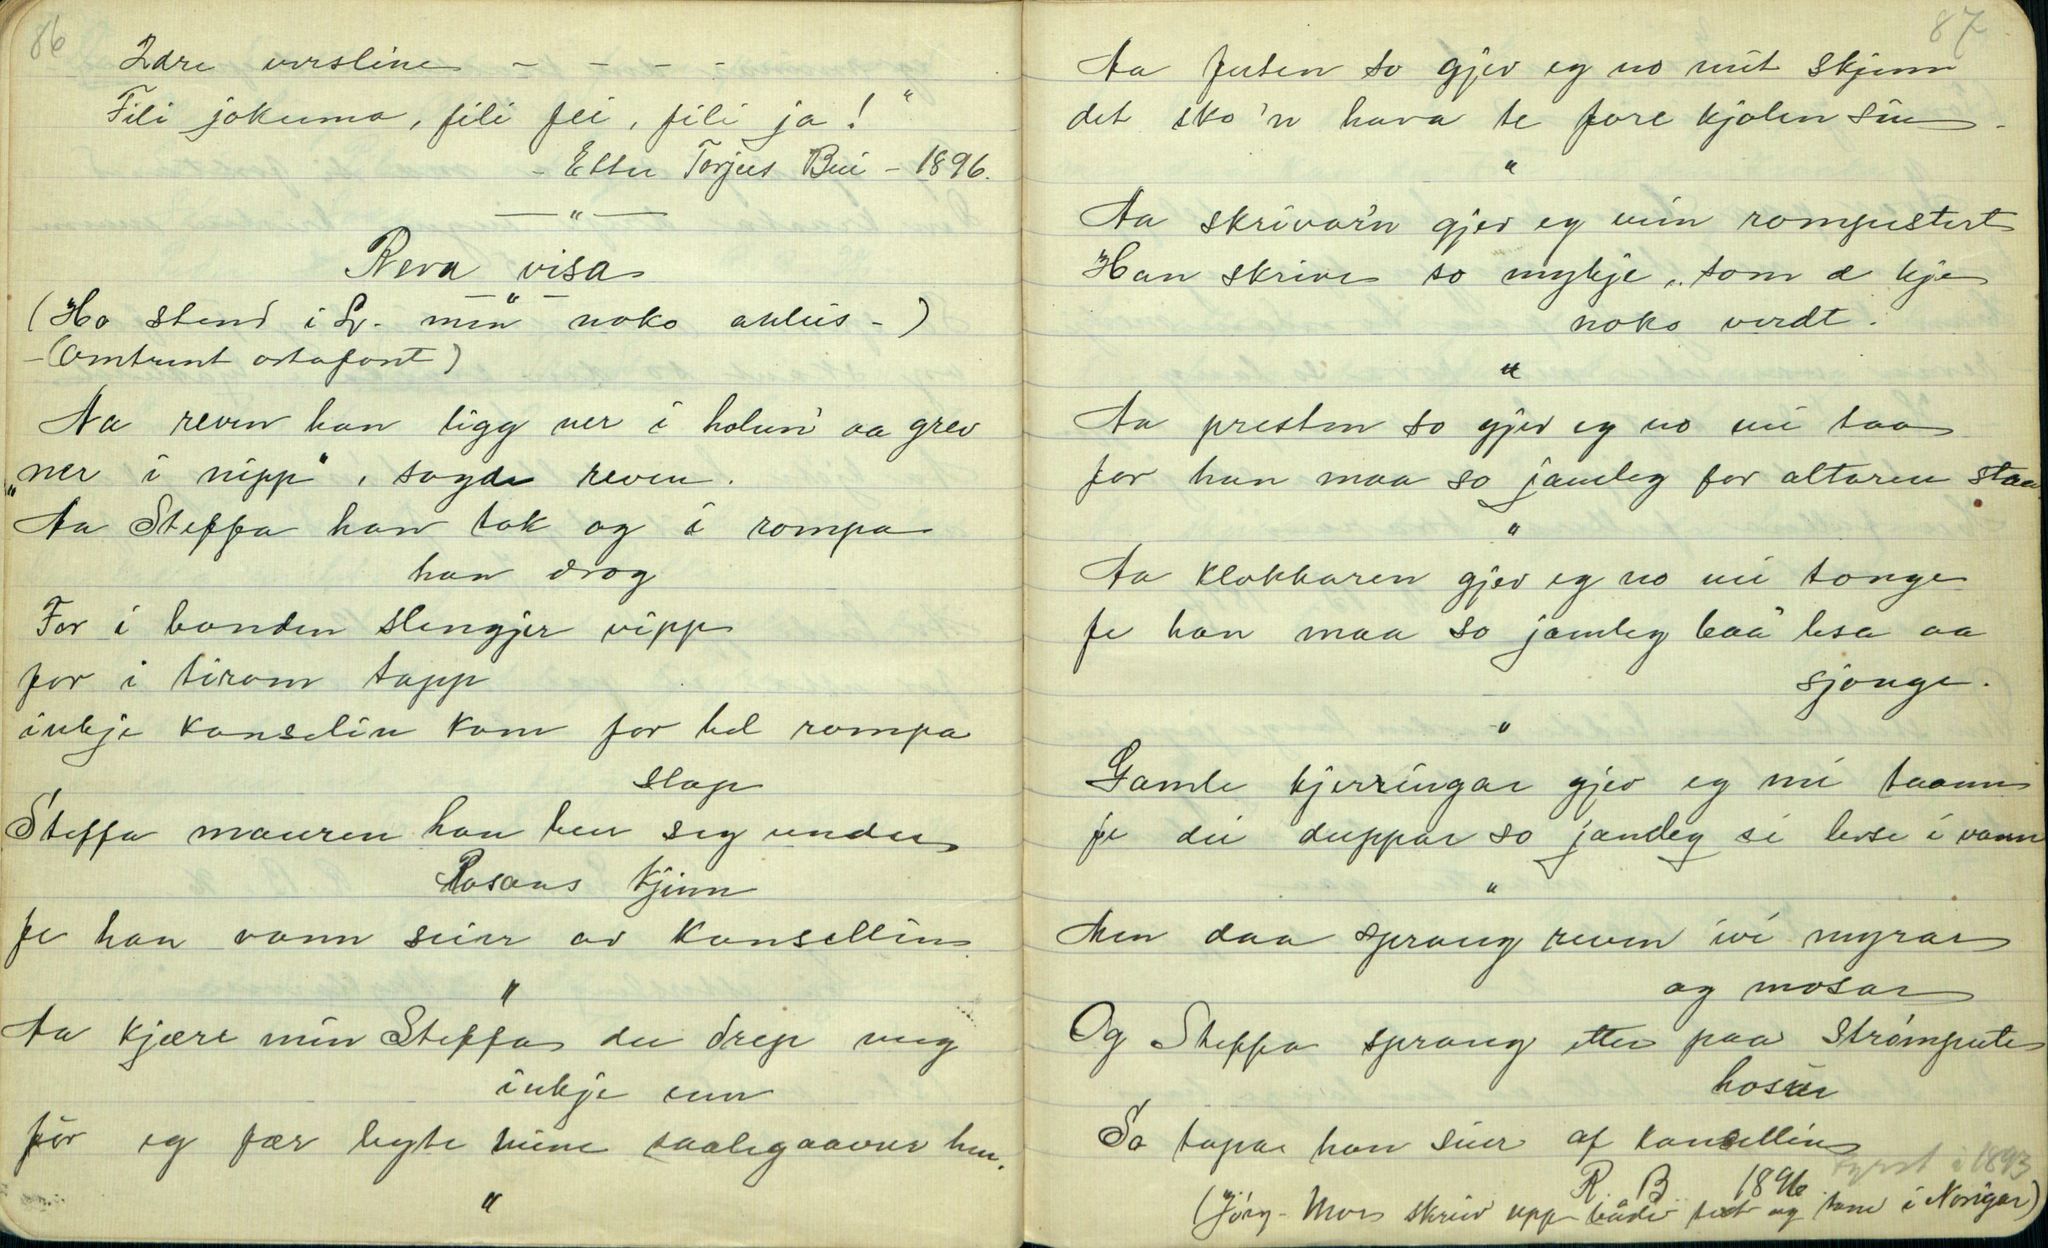 86
2dre versline - - - -
Fili jokuma, fili fei, fili ja!"
- Etter Torjus Bui - 1896.
— " —
Reva visa
— " —
(Ho stend i Lr. min noko ahleis -)
- (Omtrent ostafont)
Aa reven han ligg ner i holun' aa grev
"ner i nipp", sagde reven.
Aa Steffa han tok og i rompa
han drog
For i bonden slengjer vipp
for i tirom tapp
inkje konselin kom for hel rompa
slap
Steffa mauren han ber seg under
Rosans kjinn
fe han vann seier av konsellin
"
Aa kjære min Steffa du drep meg
inkje enn
för eg fær bygte mine saalegaavur hen.
"
87
Aa futen so gjev eg no mit skjinn
det sko'n hava te fore kjolen sin
"
Aa skrivar'n gjev eg min rompestert
Han skrive so mykje, som æ kje
noko verdt.
"
Aa presten so gjev eg no mi taa
for han maa so jamleg for altaren staa
"
Aa klokkaren gjev eg no mi tonge
fe han maa so jamleg baa' lesa aa
sjonge.
"
Gamle kjerringar gjev eg mi taann
fe dei duppar so jamleg si levse i vann
"
Men daa sprang reven ivi myrar
og mosar
Og Steffa sprang etter paa strømpute
hosur
So tapar han sier af konsellin
R. B 1896. fyrst i 1893
(Jörg. Moe skreiv upp både text og tone i Norigar)